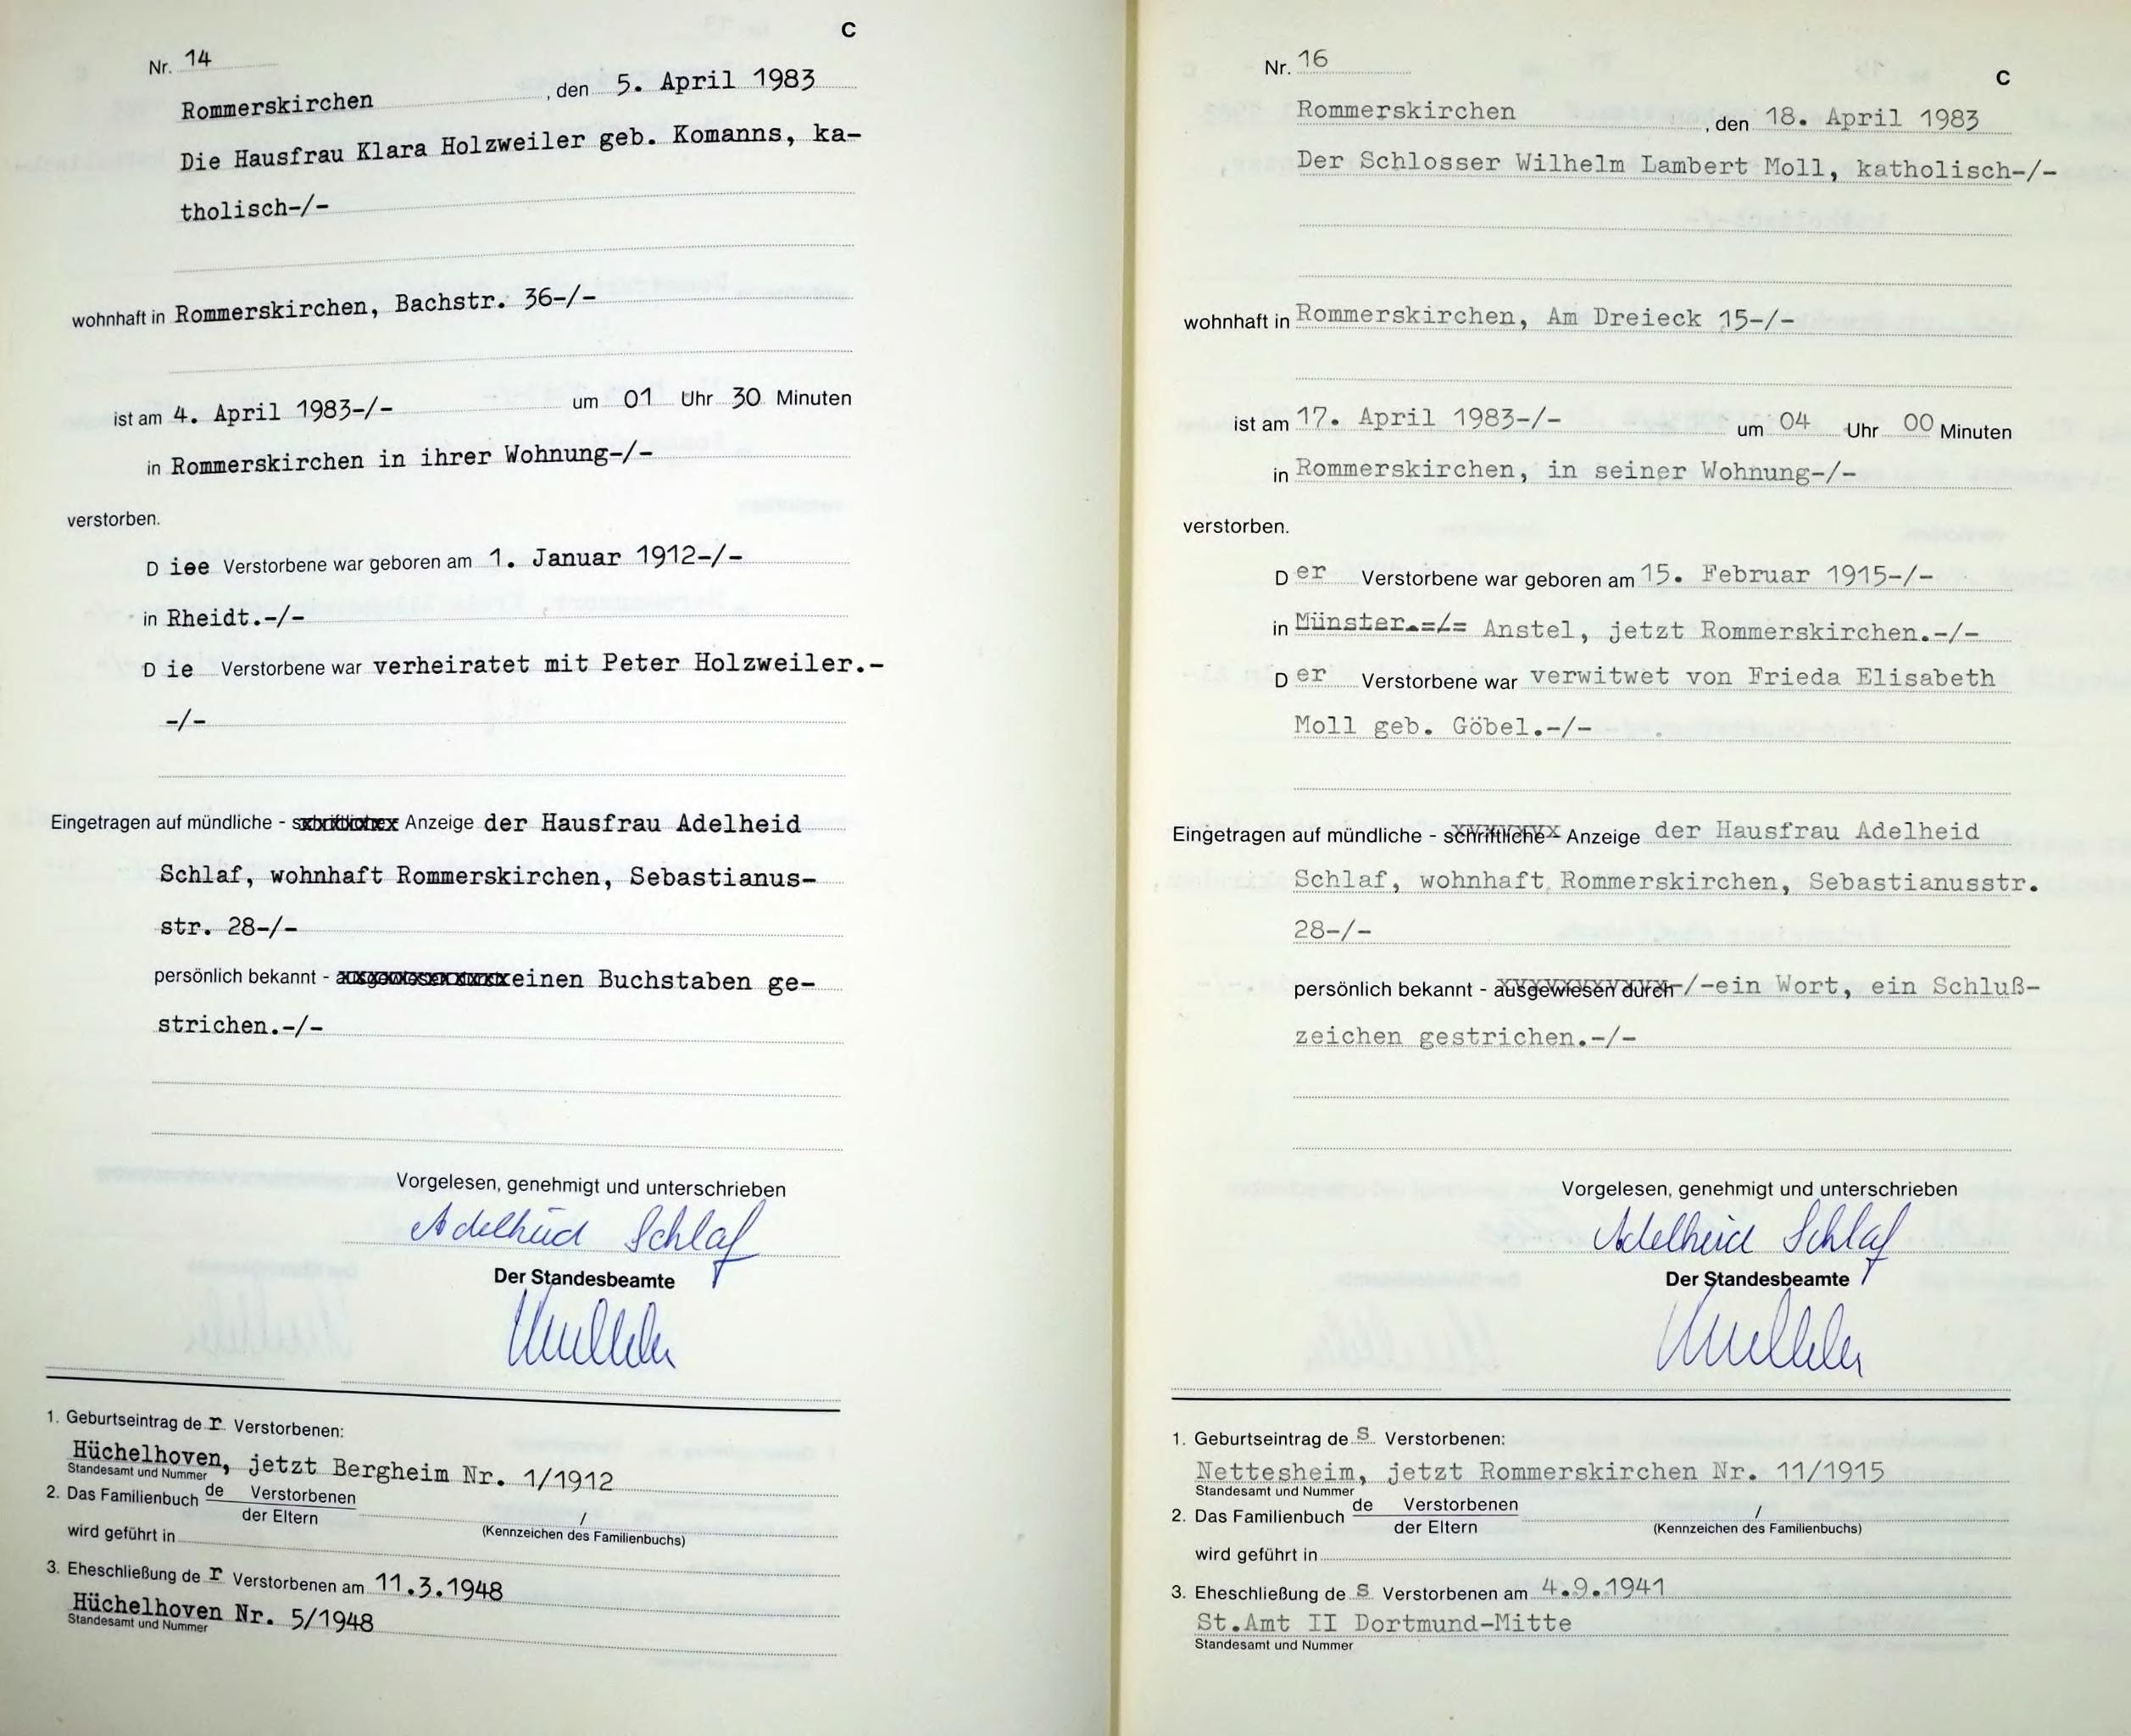 C
Nr. 14
Rommerskirchen , den 5. April 1983
Die Hausfrau Klara Holzweiler geb. Komanns, ka-
tholisch-/-
wohnhaft in Rommerskirchen, Bachstr. 36-/-
ist am 4. April 1983-/- um 01 Uhr 30 Minuten
in Rommerskirchen in ihrer Wohnung-/-
verstorben.
D iee Verstorbene war geboren am 1. Januar 1912-/-
in Rheidt.-/-
D ie Verstorbene war verheiratet mit Peter Holzweiler.-
-/-
Eingetragen auf mündliche - schriftliche Anzeige der Hausfrau Adelheid
Schlaf, wohnhaft Rommerskirchen, Sebastianus-
str. 28-/-
persönlich bekannt - ausgewiesen durch einen Buchstaben ge-
strichen.-/-
Vorgelesen, genehmigt und unterschrieben
Adelheid Schlaf
Der Standesbeamte
1. Geburtseintrag de r Verstorbenen:
Hüchelhoven, jetzt Bergheim Nr. 1/1912
Standesamt und Nummer
2. Das Familienbuch de Verstorbenen
der Eltern / (Kennzeichen des Familienbuchs)
wird geführt in
3. Eheschließung de r Verstorbenen am 11.3.1948
Hüchelhoven Nr. 5/1948
Standesamt und Nummer
Nr. 16
C
Rommerskirchen , den 18. April 1983
Der Schlosser Wilhelm Lambert Moll, katholisch-/-
wohnhaft in Rommerskirchen, Am Dreieck 15-/-
ist am 17. April 1983-/- um 04 Uhr 00 Minuten
in Rommerskirchen, in seiner Wohnung-/-
verstorben.
D er Verstorbene war geboren am 15. Februar 1915-/-
in Münster.-/- Anstel, jetzt Rommerskirchen.-/-
D er Verstorbene war verwitwet von Frieda Elisabeth
Moll geb. Göbel.-/-
Eingetragen auf mündliche - schriftliche Anzeige der Hausfrau Adelheid
Schlaf, wohnhaft Rommerskirchen, Sebastianusstr.
28-/-
persönlich bekannt - ausgewiesen durch-/-ein Wort, ein Schluß-
zeichen gestrichen.-/-
Vorgelesen, genehmigt und unterschrieben
Adelheid Schlaf
Der Standesbeamte
1. Geburtseintrag de s Verstorbenen:
Nettesheim, jetzt Rommerskirchen Nr. 11/1915
Standesamt und Nummer
2. Das Familienbuch de Verstorbenen
der Eltern / (Kennzeichen des Familienbuchs)
wird geführt in
3. Eheschließung de s Verstorbenen am 4.9.1941
St.Amt II Dortmund-Mitte
Standesamt und Nummer